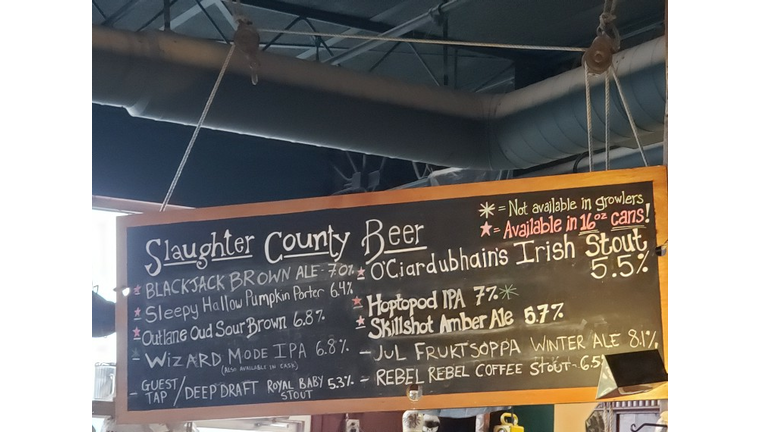 Slaughter County Beer
* = Not available in growlers
* = Available in 16oz cans!
* BLACKJACK BROWN ALE - 7.0%
* Sleepy Hallow Pumpkin Porter 6.4%
* Outlane Oud Sour Brown 6.8%
* WIZARD MODE IPA 6.8%
(ALSO AVAILABLE IN CASK)
- GUEST TAP / DEEP DRAFT ROYAL BABY STOUT 5.3%
* O'Ciardubhain's Irish Stout
5.5%
* Hoptopod IPA 7% *
* Skillshot Amber Ale 5.7%
- JUL FRUKTSOPPA WINTER ALE 8.1%
- REBEL REBEL COFFEE STOUT - 6.5